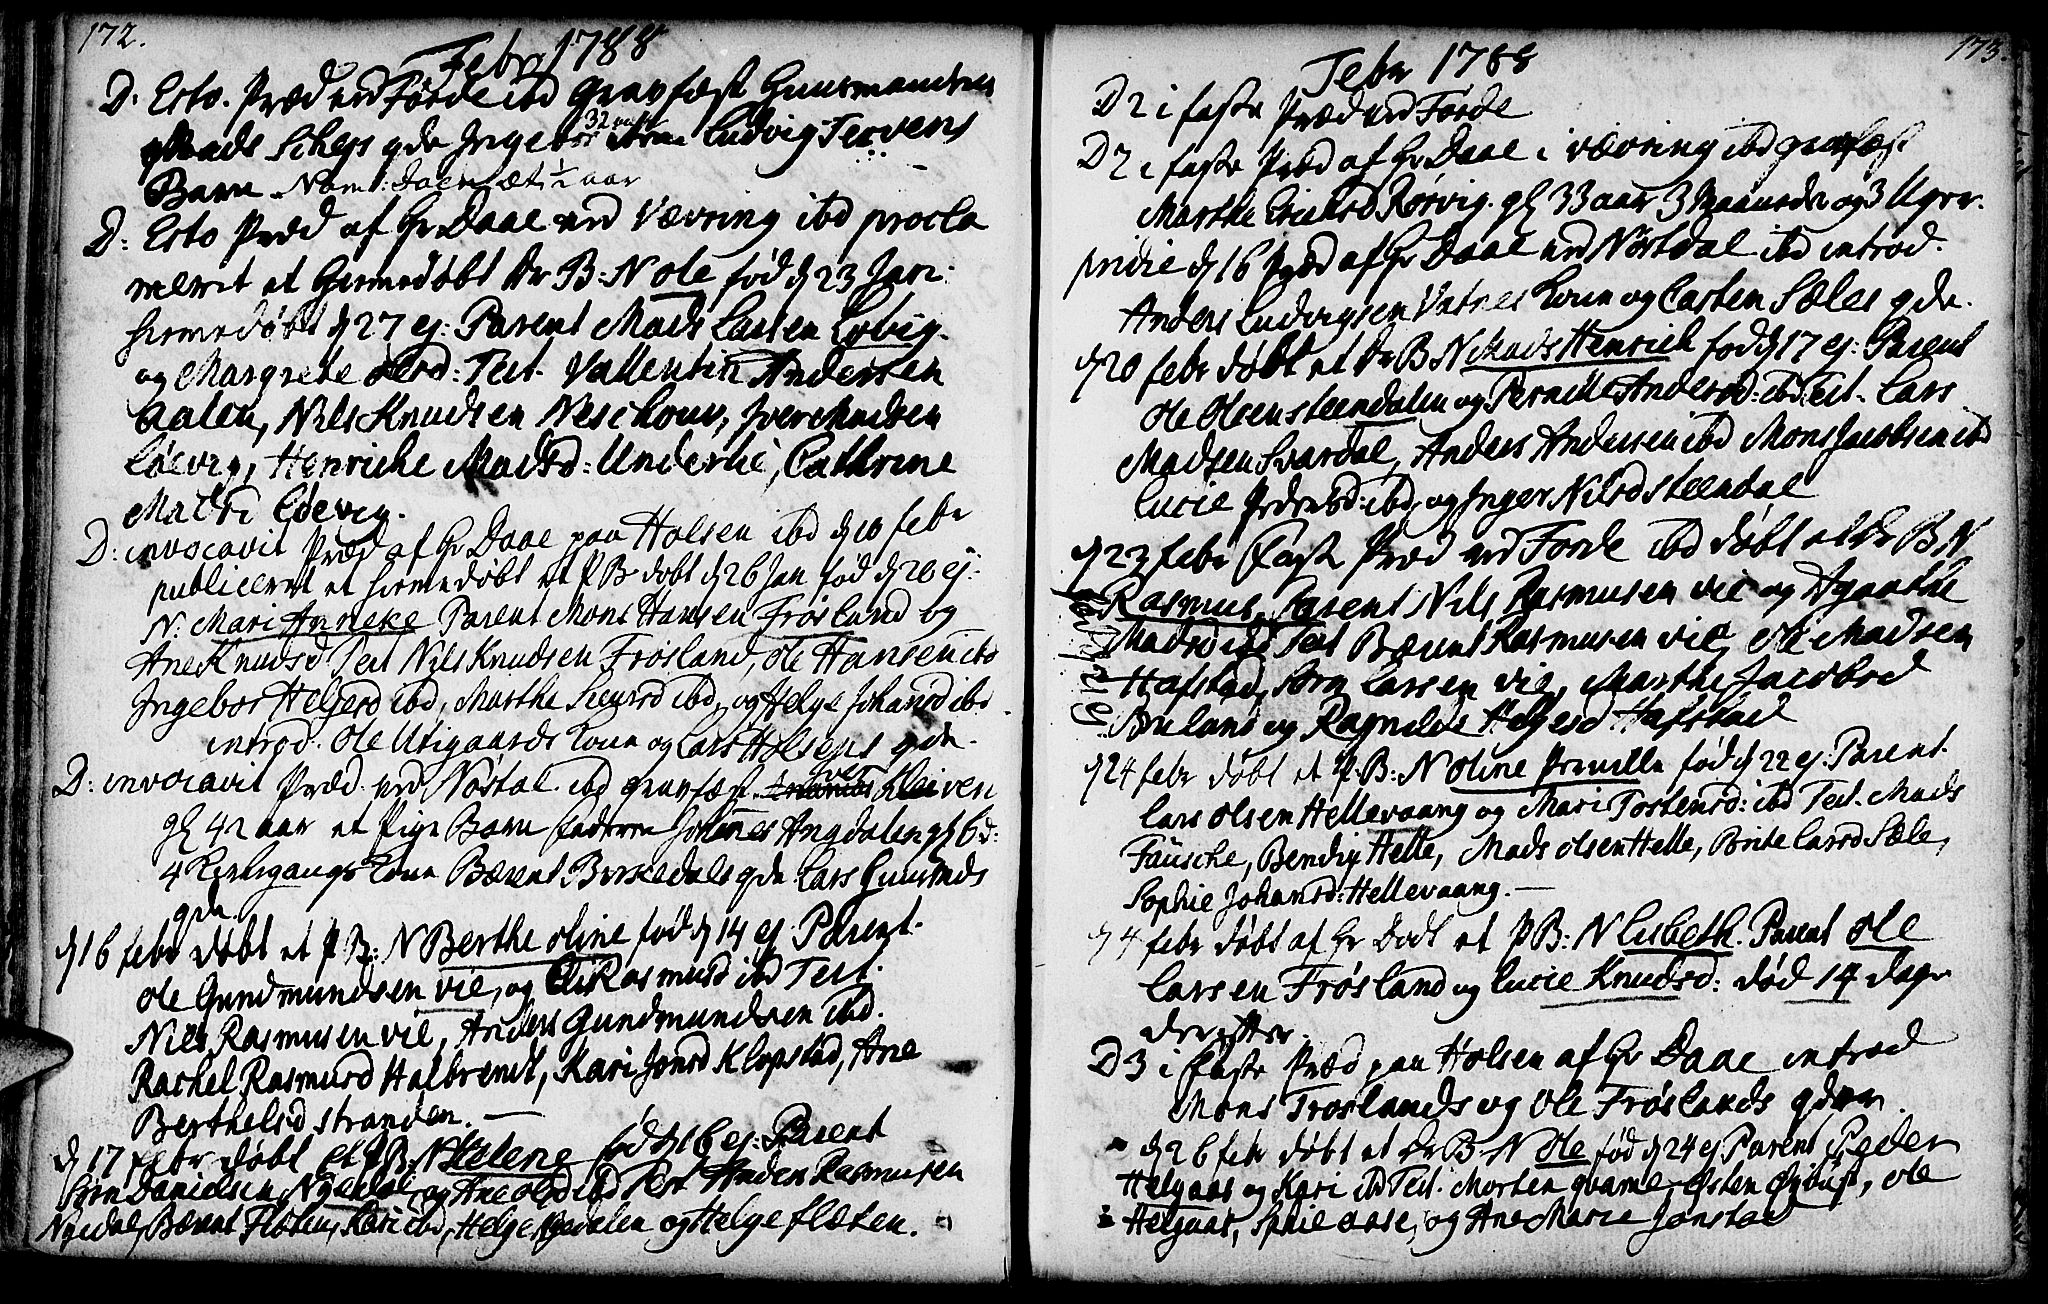 172.
Febr 1788
D: Esto. Præd ved Førde ibd gravfæst Huusmanden
Mads Scheis qde Ingebor 32 aar Ludvig Tefvens
Barn Nom: Daen æt: 1/2 aar
D: Esto Præd af Hr Daae ved Vævring ibd procla
meret et hiemedøbt Dr B: N Ole fød d 23 Jan:
hiemedøbt d 27 ej: Parent Mads Larsen Løvig
og Margrete Olsd: Test. Vallentin Andersen
Aalen, Nils Knudsen Neschouv, Iver Madsen
Løevig, Henriche Madsd: Underlie, Cathrine
Madsd Løevig.
D: invocavit Præd af Hr Daae paa Holsen ibd d 10 febr
publiceret et hiemedøbt et P B døbt d 26 Jan fød d 20 ej:
N: Mari Anneke Parent Mons Hansen Frøsland og
Ane Knudsd Test Nils Knudsen Frøsland, Ole Hansen ibd
Ingebor Helgesd ibd, Marthe Siursd ibd, og Helge Johansd ibd
introd: Ole Utigaards Kone og Lars Holsens qde.
D: invocavit Præd ved Nøstdal ibd gravfæst Iver Kleiven
gl 42 aar et Pige Barn faderen Johannes Angdalen gl 6 d:
4 Kirkegangs Kone Bærent Birkedals qde Lars Guunds
qde.
d 16 febr døbt et P B: N Berthe Oline fød d 14 ej Parent.
Ole Gundmundsen vie, og Eli Rasmusd ibd Test.
Nils Rasmusen vie, Anders Gundmundsen ibd.
Rachel Rasmusd Halbrendt, Kari Jonsd Klopstad, Ane
Berthelsd Stranden.
d 17 febr døbt et P B: N Helene fød d 16 ej: Parent
Søren Danielsen Ngedal og Ane Olsd ibd Test Anders Rasmusen
Ngedal, Bærent Floten, Kari ibd, Helge Ngedalen og Helge fleten.
173.
Febr 1788
D 2 i faste Præd ved Førde
D 2 i faste Præd af Hr Daae i Vævring ibd gravfæst
Marthe Erichsd Rørvig gl 33 aar 3 Maaneder og 3 Uger.
pridie d 16 Præd af Hr Daae ved Nøstdal ibd introd.
Anders Ludvigsen Vatnes Kone og Casten Sæles qde.
d 20 febr døbt et Dr B N Mads Henrich fød d 17 ej: Parent
Ole Olsen Steendalen og Pernille Andersd: ibd Test. Lars
Madsen Svardal, Anders Andersen ibd Mons Jacobsen ibd
Lucie Pedersd: ibd, og Inger Nilsd Steendal
d 23 febr Præd ved Førde ibd døbt et Dr B N
Rasmus, Parent Nils Rasmusen vie og Agaathe
Madsd ibd Test Bærent Rasmusen vie, Ole Madsen
Hafstad, Søren Larsen vie, Marthe Jacobsd
Bruland og Ragnilde Helgesd Hafstad
d 24 febr døbt et P: B: N Oline Pernille fød d 22 ej: Parent.
Lars Olsen Hellevaang og Mari Tostensd: ibd Test. Mads
Fausche, Bendix Helle, Mads Olsen Helle, Brite Larsd Sæle,
Sophie Johansd: Hellevaang.
d 4 febr døbt af Hr Dodt et P B: N Lisbeth. Parent Ole
Larsen Frøsland og Lucie Knudsd: død 14 dage
derefter.
D 3 i faste Præd paa Holsen af Hr Daae introd
Mons Frøslands og Ole Frøslands qder.
d 26 febr døbt et Dr B N Ole fød d 24 ej Parent Peder
Helgaas og Kari ibd Test. Morten Qvame, Østen , Ole
Helgaas, Sophie aase, og Ane Marie Jonstad